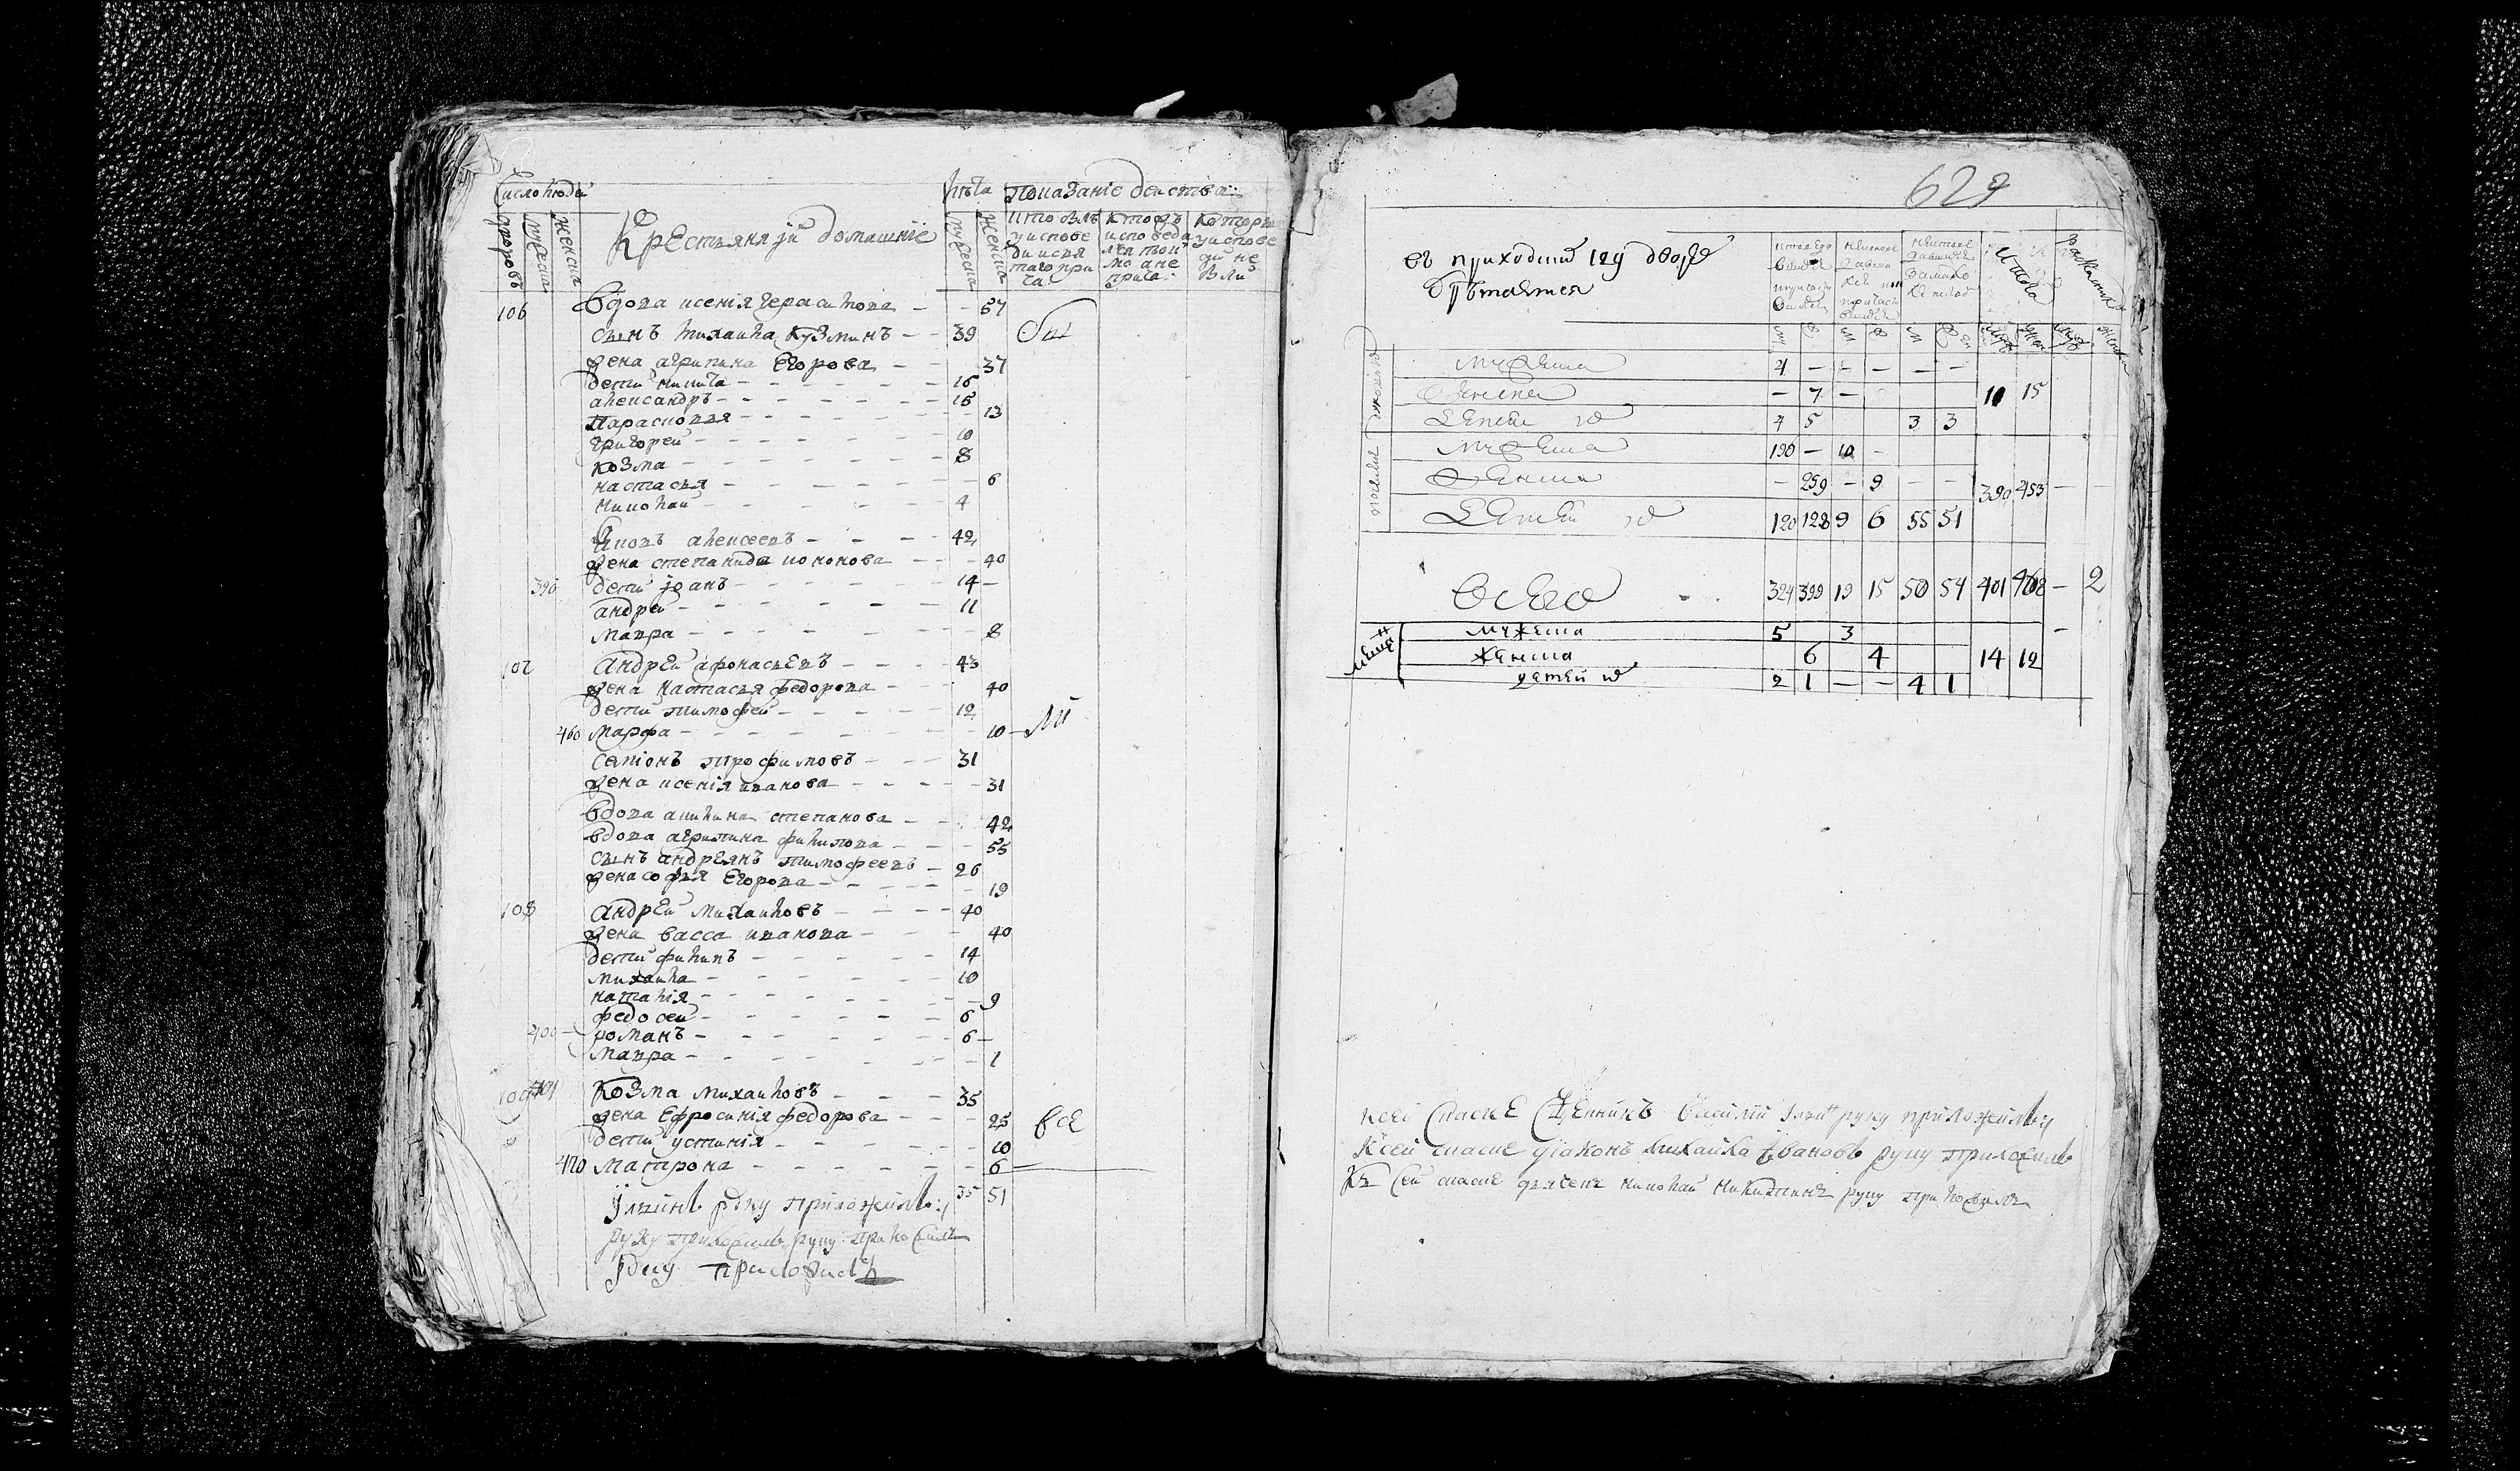 Число людей
Лѣта Показанiе действа
дворовъ
мужеска
женска
Крестьяня и домашнiе
мужеска
женска
кто былъ у исповеди и святаго прича
кто исповедался токмо а не прича
которые у исповеди не были
106 вдова ксенiя герасимова - - 57
сынъ михаила кузминъ - - 39 были
жена агрипина Егорова - - 37
дети никита - - 16
александръ - - 16
Парасковья - - 13
григорей - - 10
козма - - 8
настасья - - 6
николай - - 4
яковъ алексеевъ - - 42
жена степанида кононова - - 40
390 дети iванъ - - 14
андрей - - 11
мавра - - 8
107 андрей афонасьевъ - - 43
жена настасья федорова - - 40
дети тимофей - - 12
460 марфа - - 10 - ли
семiонъ трофимовъ - - 31
жена ксенiя иванова - - 31
вдова акилина степанова - - 42
вдова агрипина филипова - - 55
сынъ андреянъ тимофеевъ - 26
жена софья Егорова - - 19
108 андрей михаиловъ - - 40
жена васса иванова - - 40
дети филипъ - - 14
михаила - - 10
наталiя - - 9
федосей - - 6
400 романъ - - 6
мавра - - 1
109 401 козма михаиловъ - - 35
жена Ефросинiя федорова - - 25 все
дети устинiя - - 10
470 матрона - - 6
35 51
Ильинъ руку приложилъ
руку приложилъ руку приложилъ
руку приложилъ
629
въ приходии 129 дворе
обретается
Итого
Расколники
мужеска 4 - - - - -
женска - 7 - 10 15
детей 4 5 3 3
мужеска 190 - 10 -
женска - 259 - 9 - - 390 453 -
детей 120 128 9 6 55 51
всего 324 399 19 15 58 54 401 468 - 2
мужеска 5 3
женска 6 4 14 12
детей 2 1 - - 4 1
к сей скаске Священникъ Василiй Ильинъ руку приложилъ
к сей скаске дiаконъ михаила Ивановъ руку приложилъ
къ сей скаске дьячекъ николай никитинъ руку приложилъ